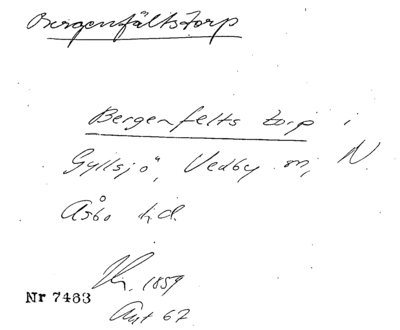 Bergenfältstorp
Bergenfelts torp i
Gyllsjö, Vedby sn, N.
Åsbo hd.
1859
Nr 7483
Ant 67